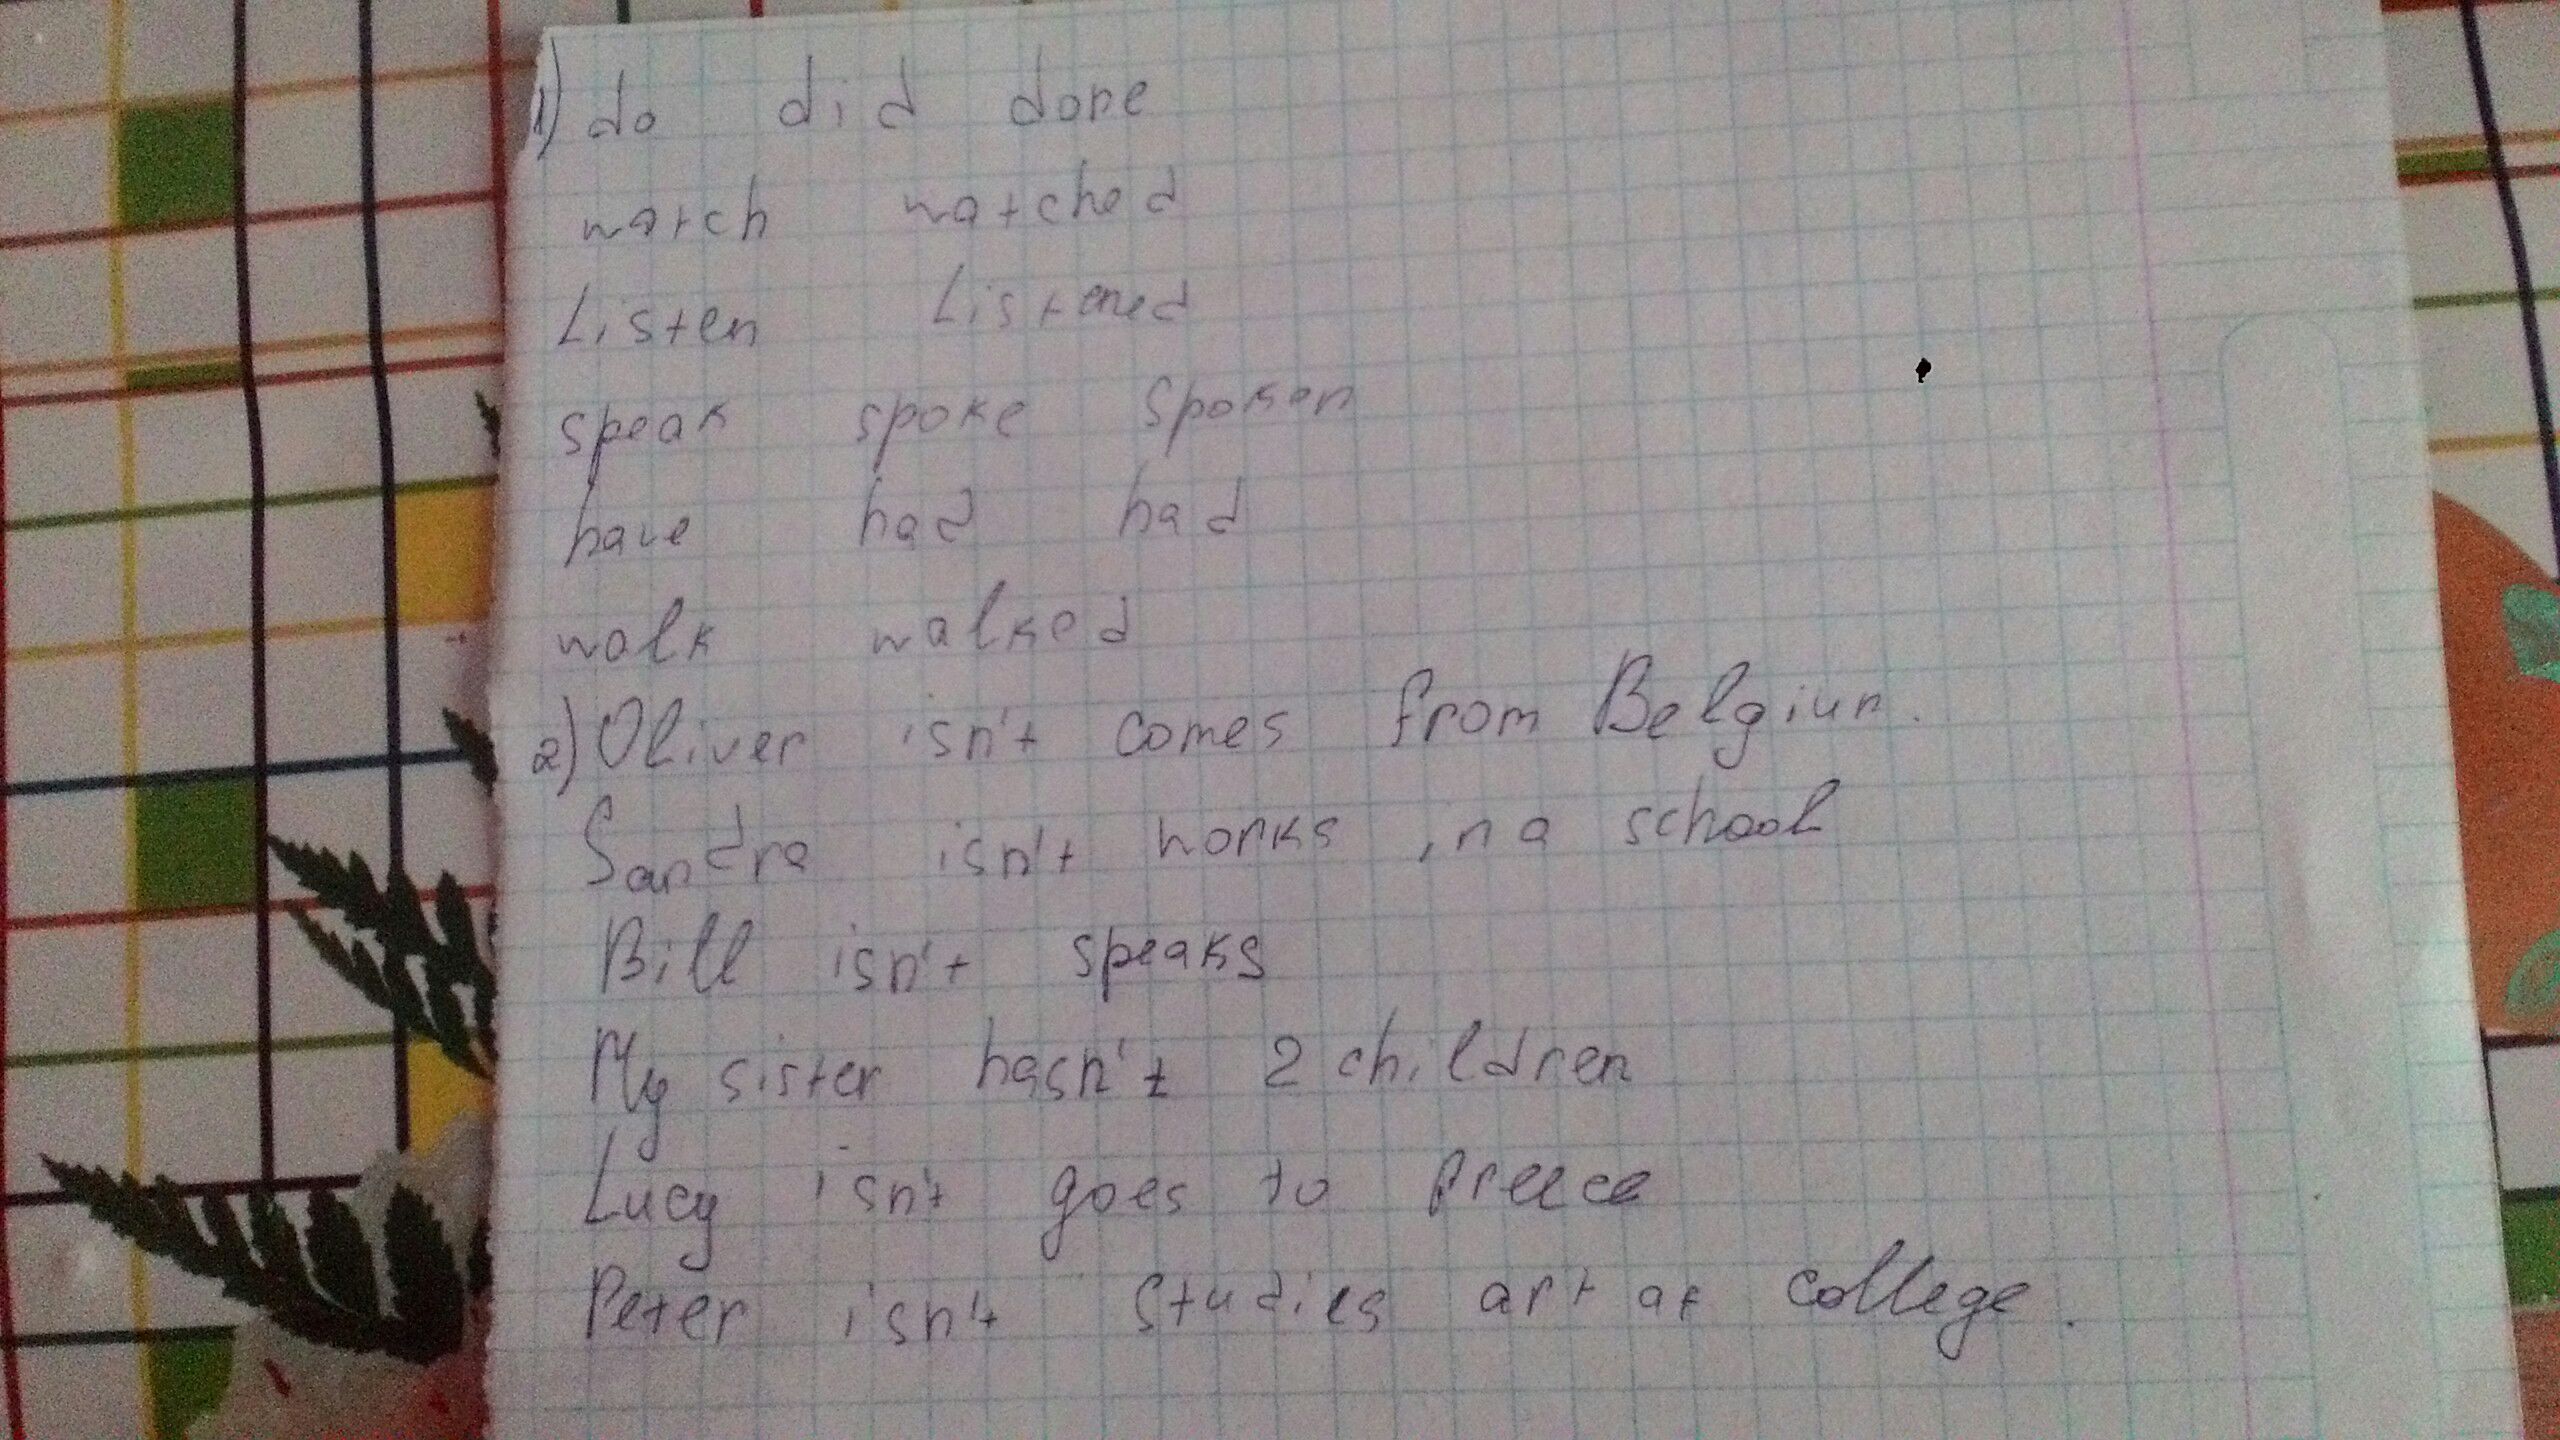 1) do did done
watch watched
Listen Listened
speak spoke spoken
have had had
walk walked
2) Oliver isn't comes from Belgiun.
Sandra isn't works in a school
Bill isn't speaks
My sister hasn't 2 children
Lucy isn't goes to preece
Peter isn't studies art at college.